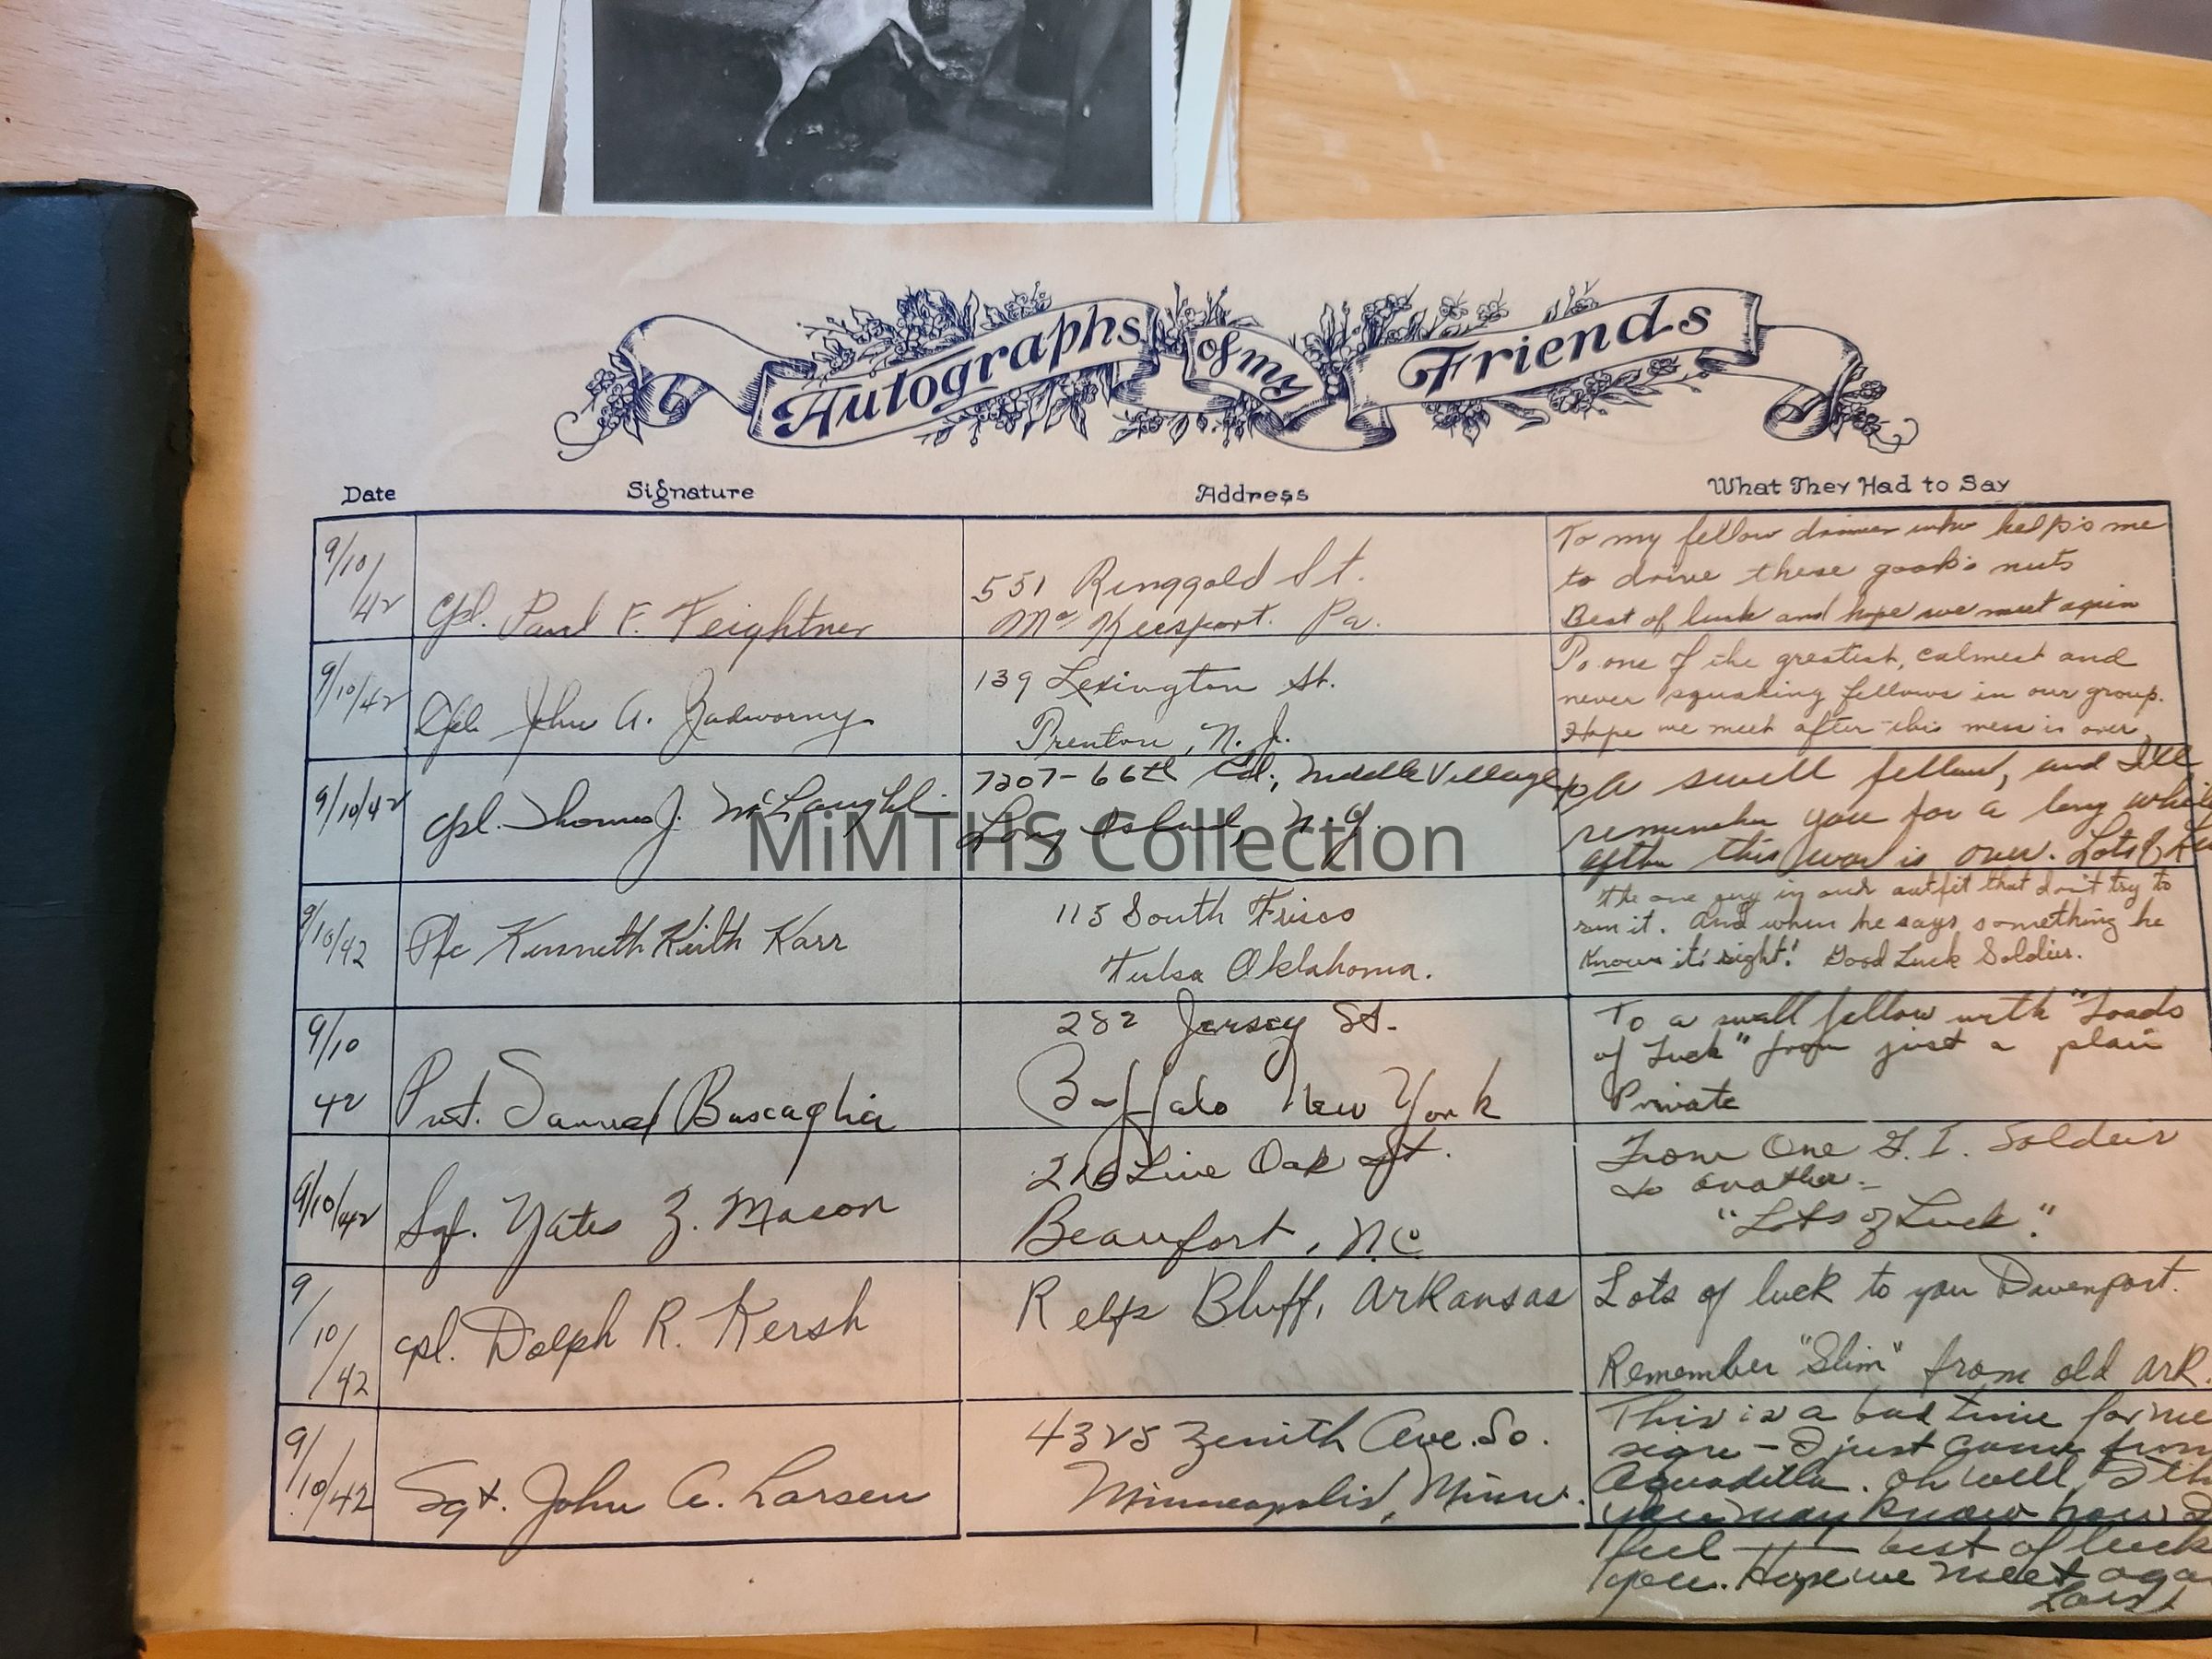 Autographs of my Friends
Date Signature Address What They Had to Say
9/10/42
Cpl. Paul F. Feightner
551 Ringgold St.
Mc Keesport. Pa.
To my fellow driver who help's me
to drive these gook's nuts
Best of luck and hope we meet again
9/10/42
Cpl. John A. Zadworny
139 Lexington St.
Trenton, N. J.
To one of the greatest, calmest and
never squaking fellows in our group.
Hope we meet after this mess is over
9/10/42
Cpl. Thomas J. McLaughlin
7207-66th Rd., Middle Village
Long Island, N.Y.
To A swell fellow, and I'll
remember you for a long while
after this war is over. Lots of
9/10/42
Pfc Kenneth Keith Karr
113 South Frisco
Tulsa Oklahoma.
The one guy in our outfit that don't try to
run it. And when he says something he
Knows it's right! Good Luck Soldier.
9/10
42
Pvt. Samuel Buscaglia
282 Jersey St.
Buffalo New York
To a swell fellow with "Loads
of Luck" from just a plain
Private
9/10/42
Sgt. Yates Z. Mason
216 Live Oak St.
Beaufort, N.C.
From One G. I. Soldeir
to another-
"Lots of Luck."
9/10/42
Cpl. Dolph R. Kersh
Relfs Bluff, Arkansas
Lots of luck to you Davenport.
Remember "Slim" from old Ark.
9/10/42
Sgt. John A. Larsen
4325 Zenith Ave. So.
Minneapolis, Minn.
This is a bad time for me
sign - I just came from
Aguadilla. Oh well, I
you may know how I
feel — best of luck
you. Hope we meet
MiMTHS Collection